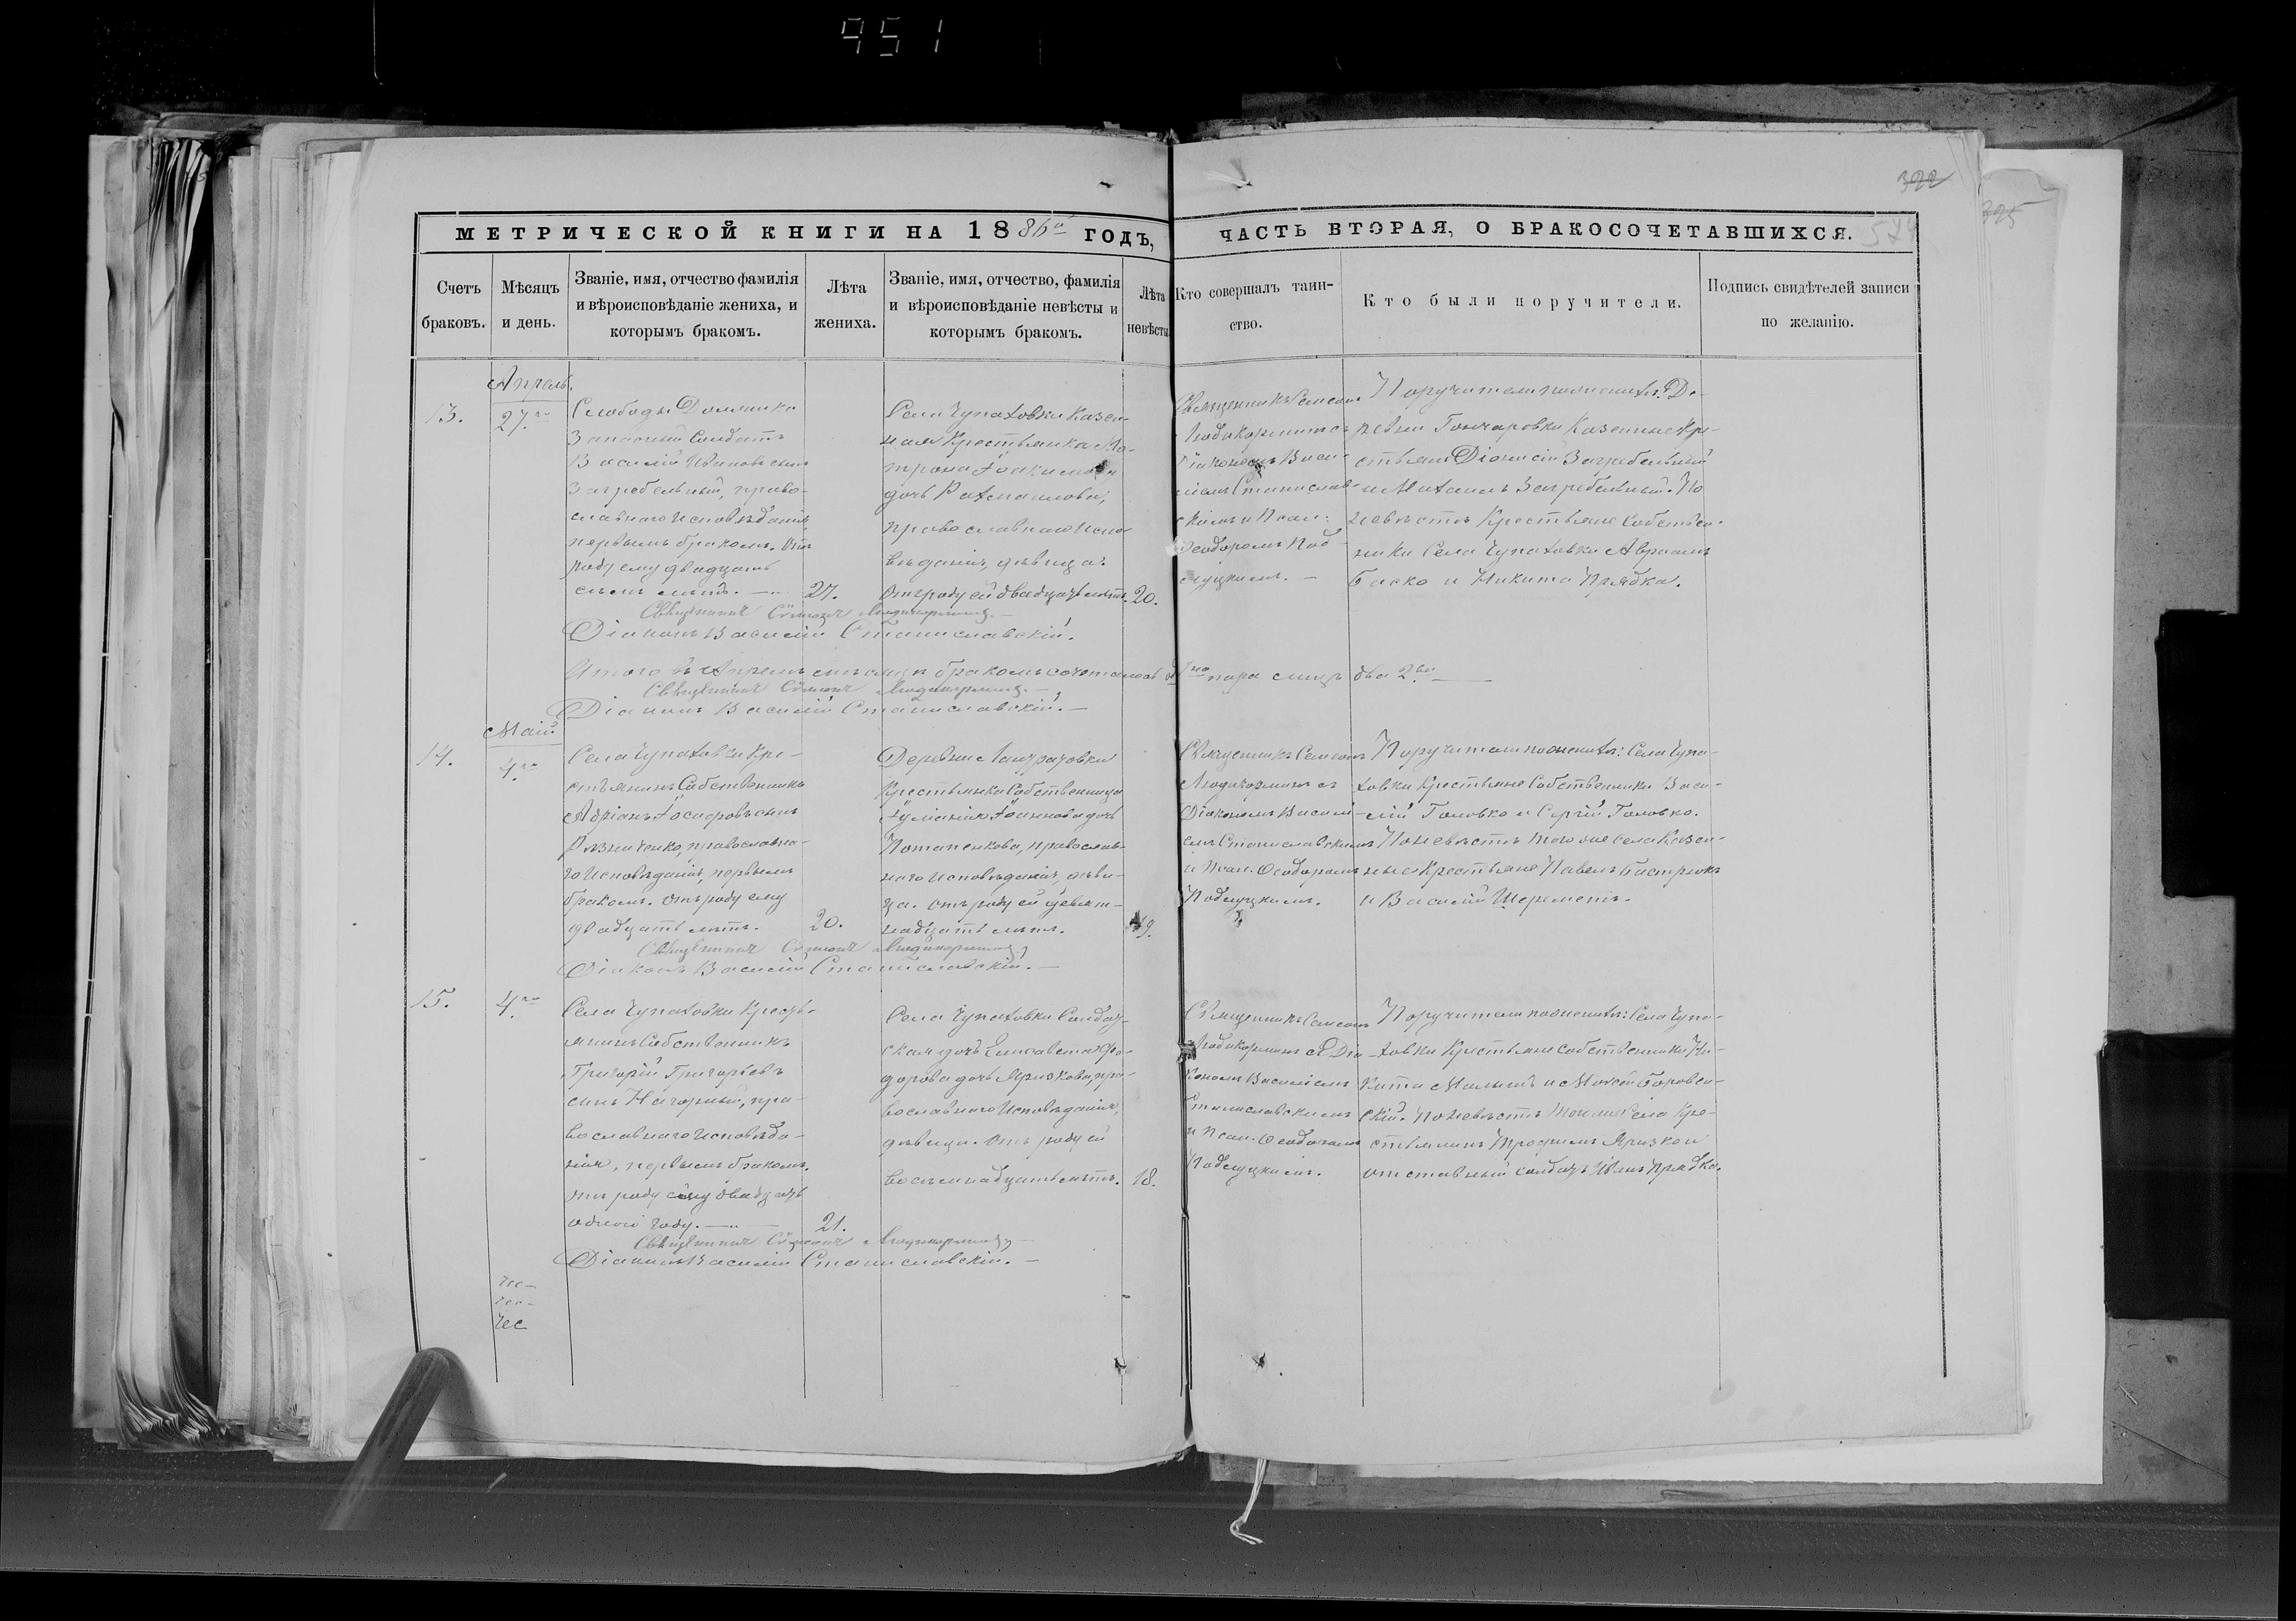 951
322
325
МЕТРИЧЕСКОЙ КНИГИ НА 1886го ГОДЪ,
ЧАСТЬ ВТОРАЯ, О БРАКОСОЧЕТАВШИХСЯ.
Счетъ браковъ.
Мѣсяцъ и день.
Званіе, имя, отчество фамилія
и вѣроисповѣданіе жениха, и
которымъ бракомъ.
Лѣта
жениха.
Званіе, имя, отчество, фамилія
и вѣроисповѣданіе невѣсты и
которымъ бракомъ.
Лѣта
невѣсты
Кто совершалъ таин-
ство.
Кто были поручители.
Подпись свидѣтелей записи
по желанію.
Апрель.
13.
27.го
Слободы
Запасный Солдатъ
Василій Ивановъ сынъ
Загребельный, право-
славнаго исповѣданія,
первымъ бракомъ. Отъ
роду ему двадцать
семь лѣтъ.
27.
Села Чупаховки Казен-
ная Крестьянка Ма-
трона Іоакимова
дочь Рахмаилова,
православнаго испо-
вѣданія, дѣвица.
Отъ роду ей двадцать лѣтъ.
20.
Священникъ Симеонъ
Діакономъ Васи-
ліемъ Станислав-
скимъ и Псал.
Ѳеодоромъ Под-
луцкимъ.
Поручители по женихѣ: Де-
ревни Гончаровки Казенные Кре-
стьяне Діонисій Загребельный
и Михаилъ Загребельный. По
невѣстѣ Крестьяне Собствен-
ники Села Чупаховки Авраамъ
Баско и Никита Прядка.
Священникъ Симеонъ
Діаконъ Василій Станиславскій.
Итого въ Апрелѣ мѣсяцѣ бракомъ сочеталось 1на пара лицъ два 2ва
Священникъ Симеонъ
Діаконъ Василій Станиславскій.
Маій
14.
4.го
Села Чупаховки Кре-
стьянинъ Собственникъ
Адріанъ Іосифовъ сынъ
Рѣзниченко, православна-
го исповѣданія, первымъ
бракомъ. Отъ роду ему
двадцать лѣтъ.
20.
Деревни
Крестьянка Собственница
Іуліанія Іоаннова дочь
Потапенкова, православ-
наго исповѣданія, дѣви-
ца. Отъ роду ей девят-
надцать лѣтъ.
19.
Священникъ Симеонъ
Діакономъ Василі-
емъ Станиславскимъ
и Псал. Ѳеодоромъ
Подлуцкимъ.
Поручители по женихѣ: Села Чупа-
ховки Крестьяне Собственники Васи-
лій Головко и Сергій Головко.
По невѣстѣ того же села Казен-
ные Крестьяне Павелъ Бастрюкъ
и Василій Шереметъ.
Священникъ Симеонъ
Діаконъ Василій Станиславскій.
15.
4.го
Села Чупаховки Кресть-
янинъ Собственникъ
Григорій Григорьевъ
сынъ Нагорный, пра-
вославнаго исповѣда-
нія, первымъ бракомъ.
Отъ роду ему двадцать
одного году.
21.
Села Чупаховки Солдат-
ская дочь Елисавета Ѳе-
дорова дочь Яризкова, пра-
вославнаго исповѣданія,
дѣвица. Отъ роду ей
восемнадцать лѣтъ.
18.
Священникъ Симеонъ
Діа-
кономъ Василіемъ
Станиславскимъ
и Псал. Ѳеодоромъ
Подлуцкимъ.
Поручители по женихѣ: Села Чупа-
ховки Крестьяне собственники Ни-
кита Малышъ и Моисей Боровен-
скій. По невѣстѣ того же Села Кре-
стьянинъ Трофимъ Яризко и
отставный солдатъ Іовъ Прядка.
Священникъ Симеонъ
Діаконъ Василій Станиславскій.